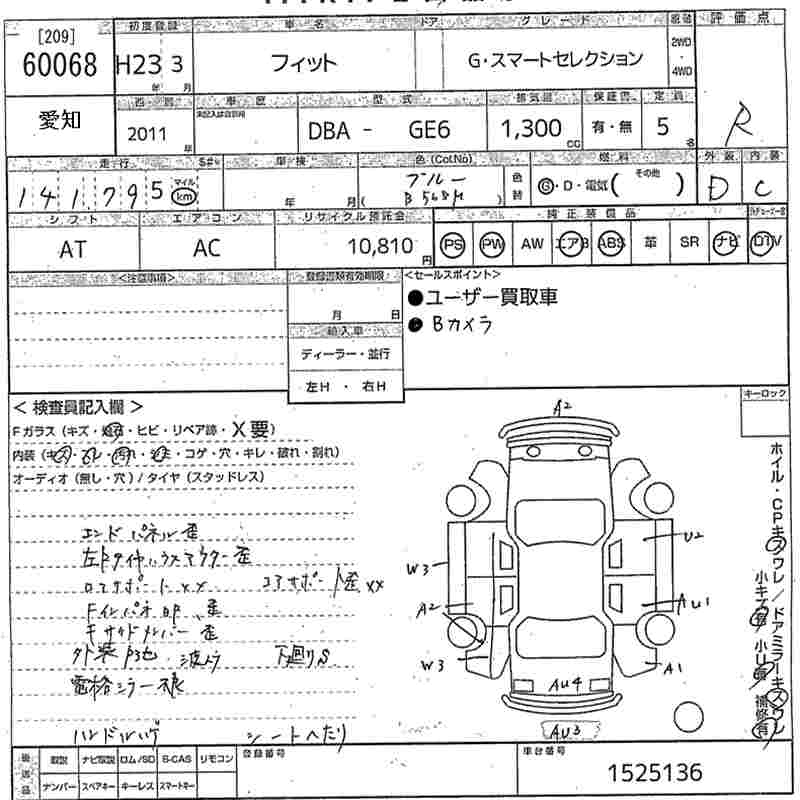 [209]
60068
初度登録
車名
ドア
グレード
評価点
H23 3
年 月
フィット
G・スマートセレクション
2WD
・
4WD
愛知
西暦
車歴
型式
排気量
保証書
定員
R
2011
年
未記入は自家用
DBA - GE6
1,300
cc
有・無
5
名
走行
S#
車検
色(Col.No)
燃料
外装
内装
141,795
マイル
km
年 月
ブルー
B568M
色替
G・D・電気(その他)
D
C
シフト
エアコン
リサイクル預託金
純正装備品
AT
AC
10,810
円
PS
PW
AW
エアB
ABS
革
SR
ナビ
DTV
<注意事項>
登録書類有効期限
月 日
輸入車
ディーラー・並行
左H ・ 右H
<セールスポイント>
●ユーザー買取車
● Bカメラ
キーロック
< 検査員記入欄 >
Fガラス(キズ・飛石・ヒビ・リペア跡・X要)
内装(キズ・ヨレ・汚れ・処走・コゲ・穴・キレ・破れ・割れ)
オーディオ(無し・穴)/タイヤ(スタッドレス)
エンドパネル歪
左Rタイヤハウスアウター歪
コアサポート歪xx
下廻りS
シートへたり
A2
W3
A2
W3
U2
AU1
A1
AU4
AU3
ホイル・CPキズワレ/ドアミラーキズワレ
小キズ有 小U有 補修有
後送品
取説
ナビ取説
ロム/SD
B-CAS
リモコン
ナンバー
スペアキー
キーレス
スマートキー
登録番号
車台番号
1525136